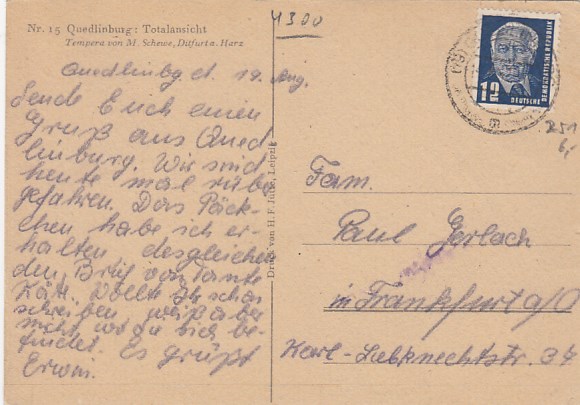 4300
Nr. 15 Quedlinburg: Totalansicht
Tempera von M. Schewe, Ditfurt a. Harz
Quedlinbg d. 19. Aug.
Sende Euch einen
Gruß aus Qued
linburg. Wir sind
heute mal rüber
gefahren. Das Päck-
chen habe ich er-
halten desgleichen
den Brief von Tante
Käti. Wollte Ihr schon
schreiben weiß aber
nicht wo sie sich be-
findet. Es grüßt
Erwin.
Druck von H. F. Jütte, Leipzig
12
DEUTSCHE
DEMOKRATISCHE REPUBLIK
251
6,-
Fam.
Paul Gerlach
in Frankfurt a/O
Karl-Liebknechtstr. 37